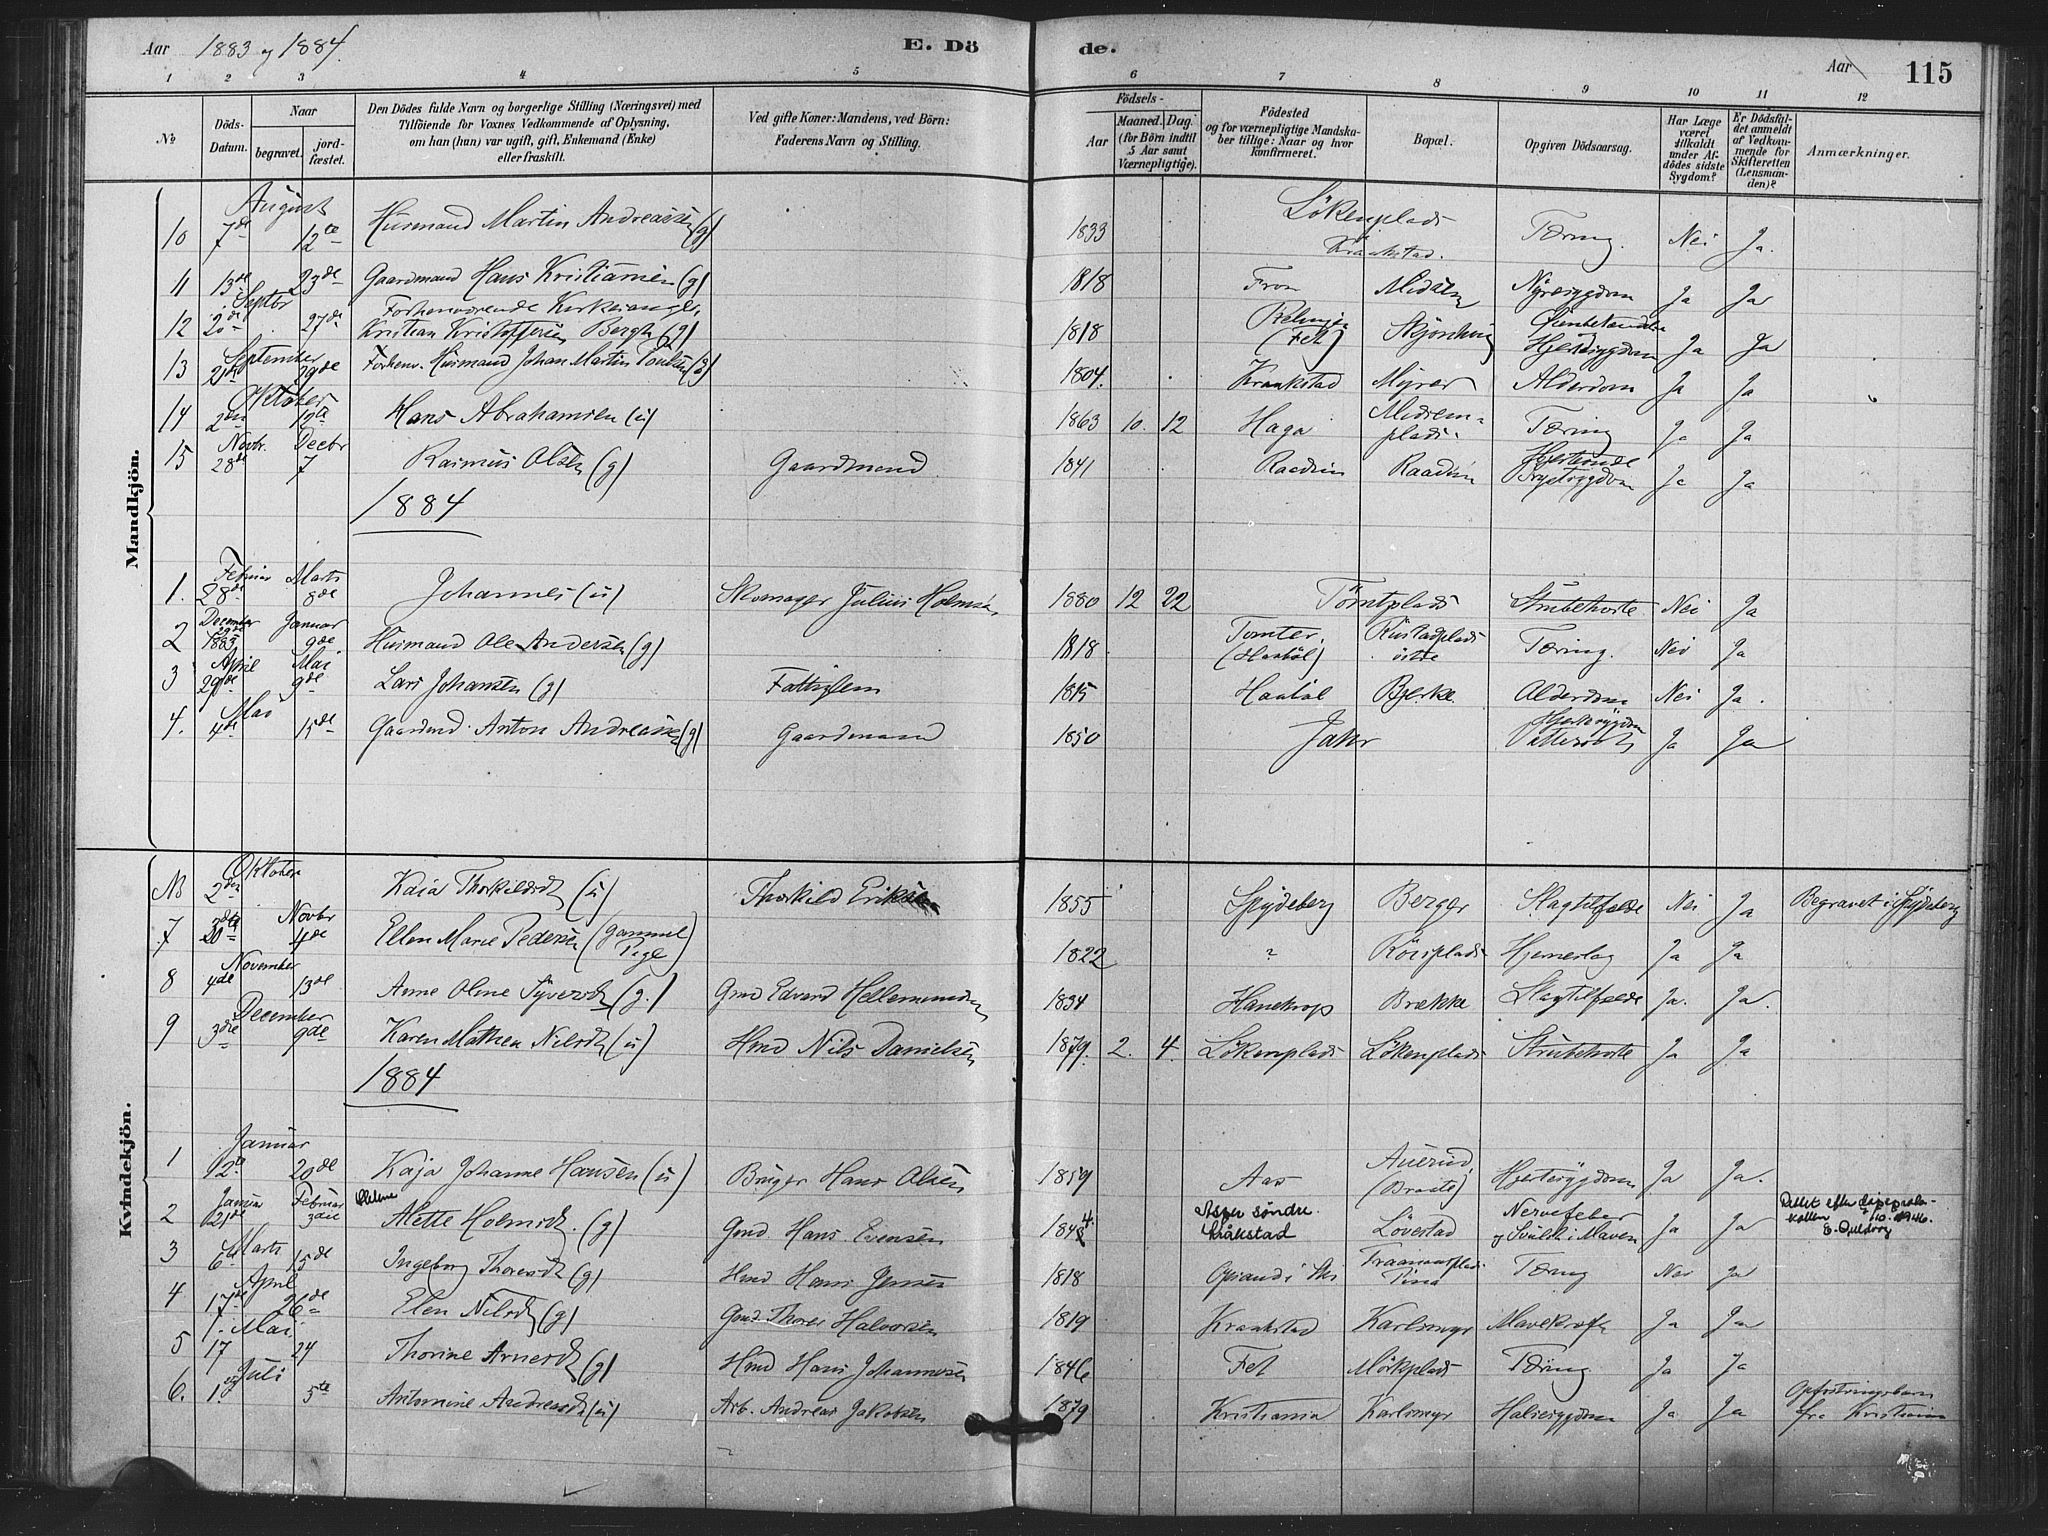 Aar 1883 og 1884. E. Dö de. Aar 115
1 2 3 4 5 6 7 8 9 10 11 12
No
Döds-Datum.
Naar
begravet.
jordfæstet.
Den Dödes fulde Navn og borgerlige Stilling (Næringsvei) med
Tilföiende for Voxnes Vedkommende af Oplysning.
om han (hun) var ugift, gift, Enkemand (Enke)
eller fraskilt.
Ved gifte Koner: Mandens, ved Börn:
Faderens Navn og Stilling.
Födsels-
Aar
Maaned. Dag.
(for Börn indtil
5 Aar samt
Værnepligtige).
Födested
og for værnepligtige Mandska-
ber tillige: Naar og hvor
konfirmeret.
Bopæl.
Opgiven Dödsaarsag.
Har Læge
været
tilkaldt
under Af-
dödes sidste
Sygdom?
Er Dödsfal-
det anmeldt
af Vedkom-
mende for
Skifteretten
(Lensman-
den)?
Anmærkninger.
Mandkjön.
August
10 7de 12te Husmand Martin Andreassen (g) 1833 Lökenplads Kraakstad. Tæring. Nei Ja.
11 13de 23de Gaardmand Hans Kristiansen (g) 1818 Fron Midsem Nyresygdom Ja Ja
Septbr
12 20de 27de Forhenværende Kirkesanger Kristian Kristoffersen Bergh (g) 1818 (Fet) Hjertesygdom Ja Ja
September
13 21de 29de Forhenv. Husmand Johan Martin Poulsen (g) 1804. Kraakstad Myrer Alderdom Ja Ja
Oktober
14 2den 12te Hans Abrahamsen (u) 1863 10 12 Haga Midsemplads. Tæring Ja Ja
Novbr. Decbr
15 28de 7 Rasmus Olsen (g) Gaardmand 1841 Raadim Raadim Brystsygdom Ja Ja
1884
Februar Marts
1. 28de 8de Johannes (u) Skomager Julius Holmsen 1880 12 22 Tömtplads Strubehoste Nei Ja
December 29de 1883 Januar
2 9de Husmand Ole Andersen (g) 1818 Tomter. (Haaböl) Rustadplads östre Tæring. Nei Ja
April Mai
3 29de 9de Lars Johansen (g) Fattiglem 1815 Haaböl Bjerke Alderdom Nei Ja.
Mai
4. 4de 15de Gaardmd. Anton Andreassen (g) Gaardmand 1850 Hjertesygdom Ja Ja
Kvindekjön.
Oktober
NB 2den Kaja Thorkildsdt (u) Thorkild Eriksen 1855 Spydeberg Berger Slagtilfælde Nei Ja Begravet i Spydeberg
Novbr
7 4de Ellen Marie Pedersen (gammel Pige) 1822 " Hjerneslag Ja Ja
November
8 4de 13de Anne Oline Syversdt (g.) Gmd Edvard Hellemundsen 1834 Hanekrop Brække Slagtilfælde Ja. Ja.
December
9 3die 9de Karen Mathea Nilsdt (u) Hmd Nils Danielsen 1879. 2. 4. Lökenplads Lökenplads Strubehoste Ja Ja
1884
Januar
1 12te 20de Kaja Johanne Hansen (u) Bruger Hans Olsen 1859 Aas Auerud (Braate) Hjertesygdom Ja Ja.
Januar Februar
2 21de 3die Olene Alette Holmsdt. (g) Gmd. Hans Evensen 1844 Asper söndre. Kråkstad Lövestad Nervefeber og Svulst i Maven Ja Ja Rettet efter dåpsprotokollen 10. 1946.
Marts
3 6te 15de Ingeborg Thoresdt (g) Hmd Hans Jensen 1818 Tæring Nei Ja
April
4 17de 26de Elen Nilsdt (g) Gmd. Thores Halvorsen 1819 Kraakstad Karlsmyr Mavekræft Ja Ja
Mai.
5 17 24 Thorine Arnesdt (g) Hmd Hans Johannesen 1846 Fet Mörkplads Tæring Ja Ja
Juli
6. 1. 5te Antomine Andreasdt (u) Arb. Andreas Jakobsen 1879 Kristiania Karlsmyr Halssygdom Ja Ja Opfostringsbarn fra Kristiania